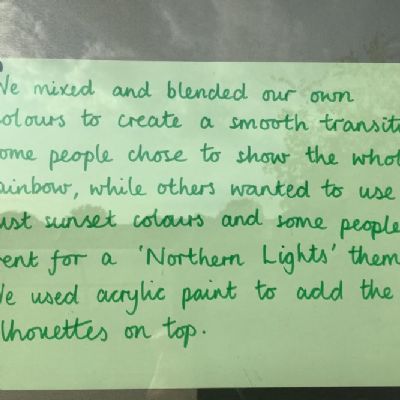 We mixed and blended our own
colours to create a smooth transiti
ome people chose to show the whol
ainbow, while others wanted to use
ust sunset colours and some people
ent for a 'Northern Lights' them
We used acrylic paint to add the
lhouettes on top.